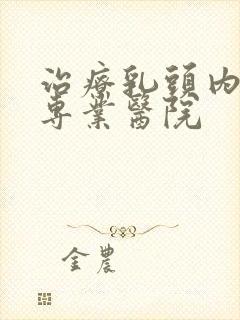 治療乳頭內
專業醫院
金農